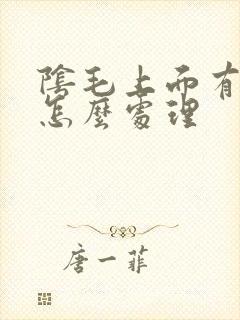 陰毛上面有
怎麼處理
唐一菲